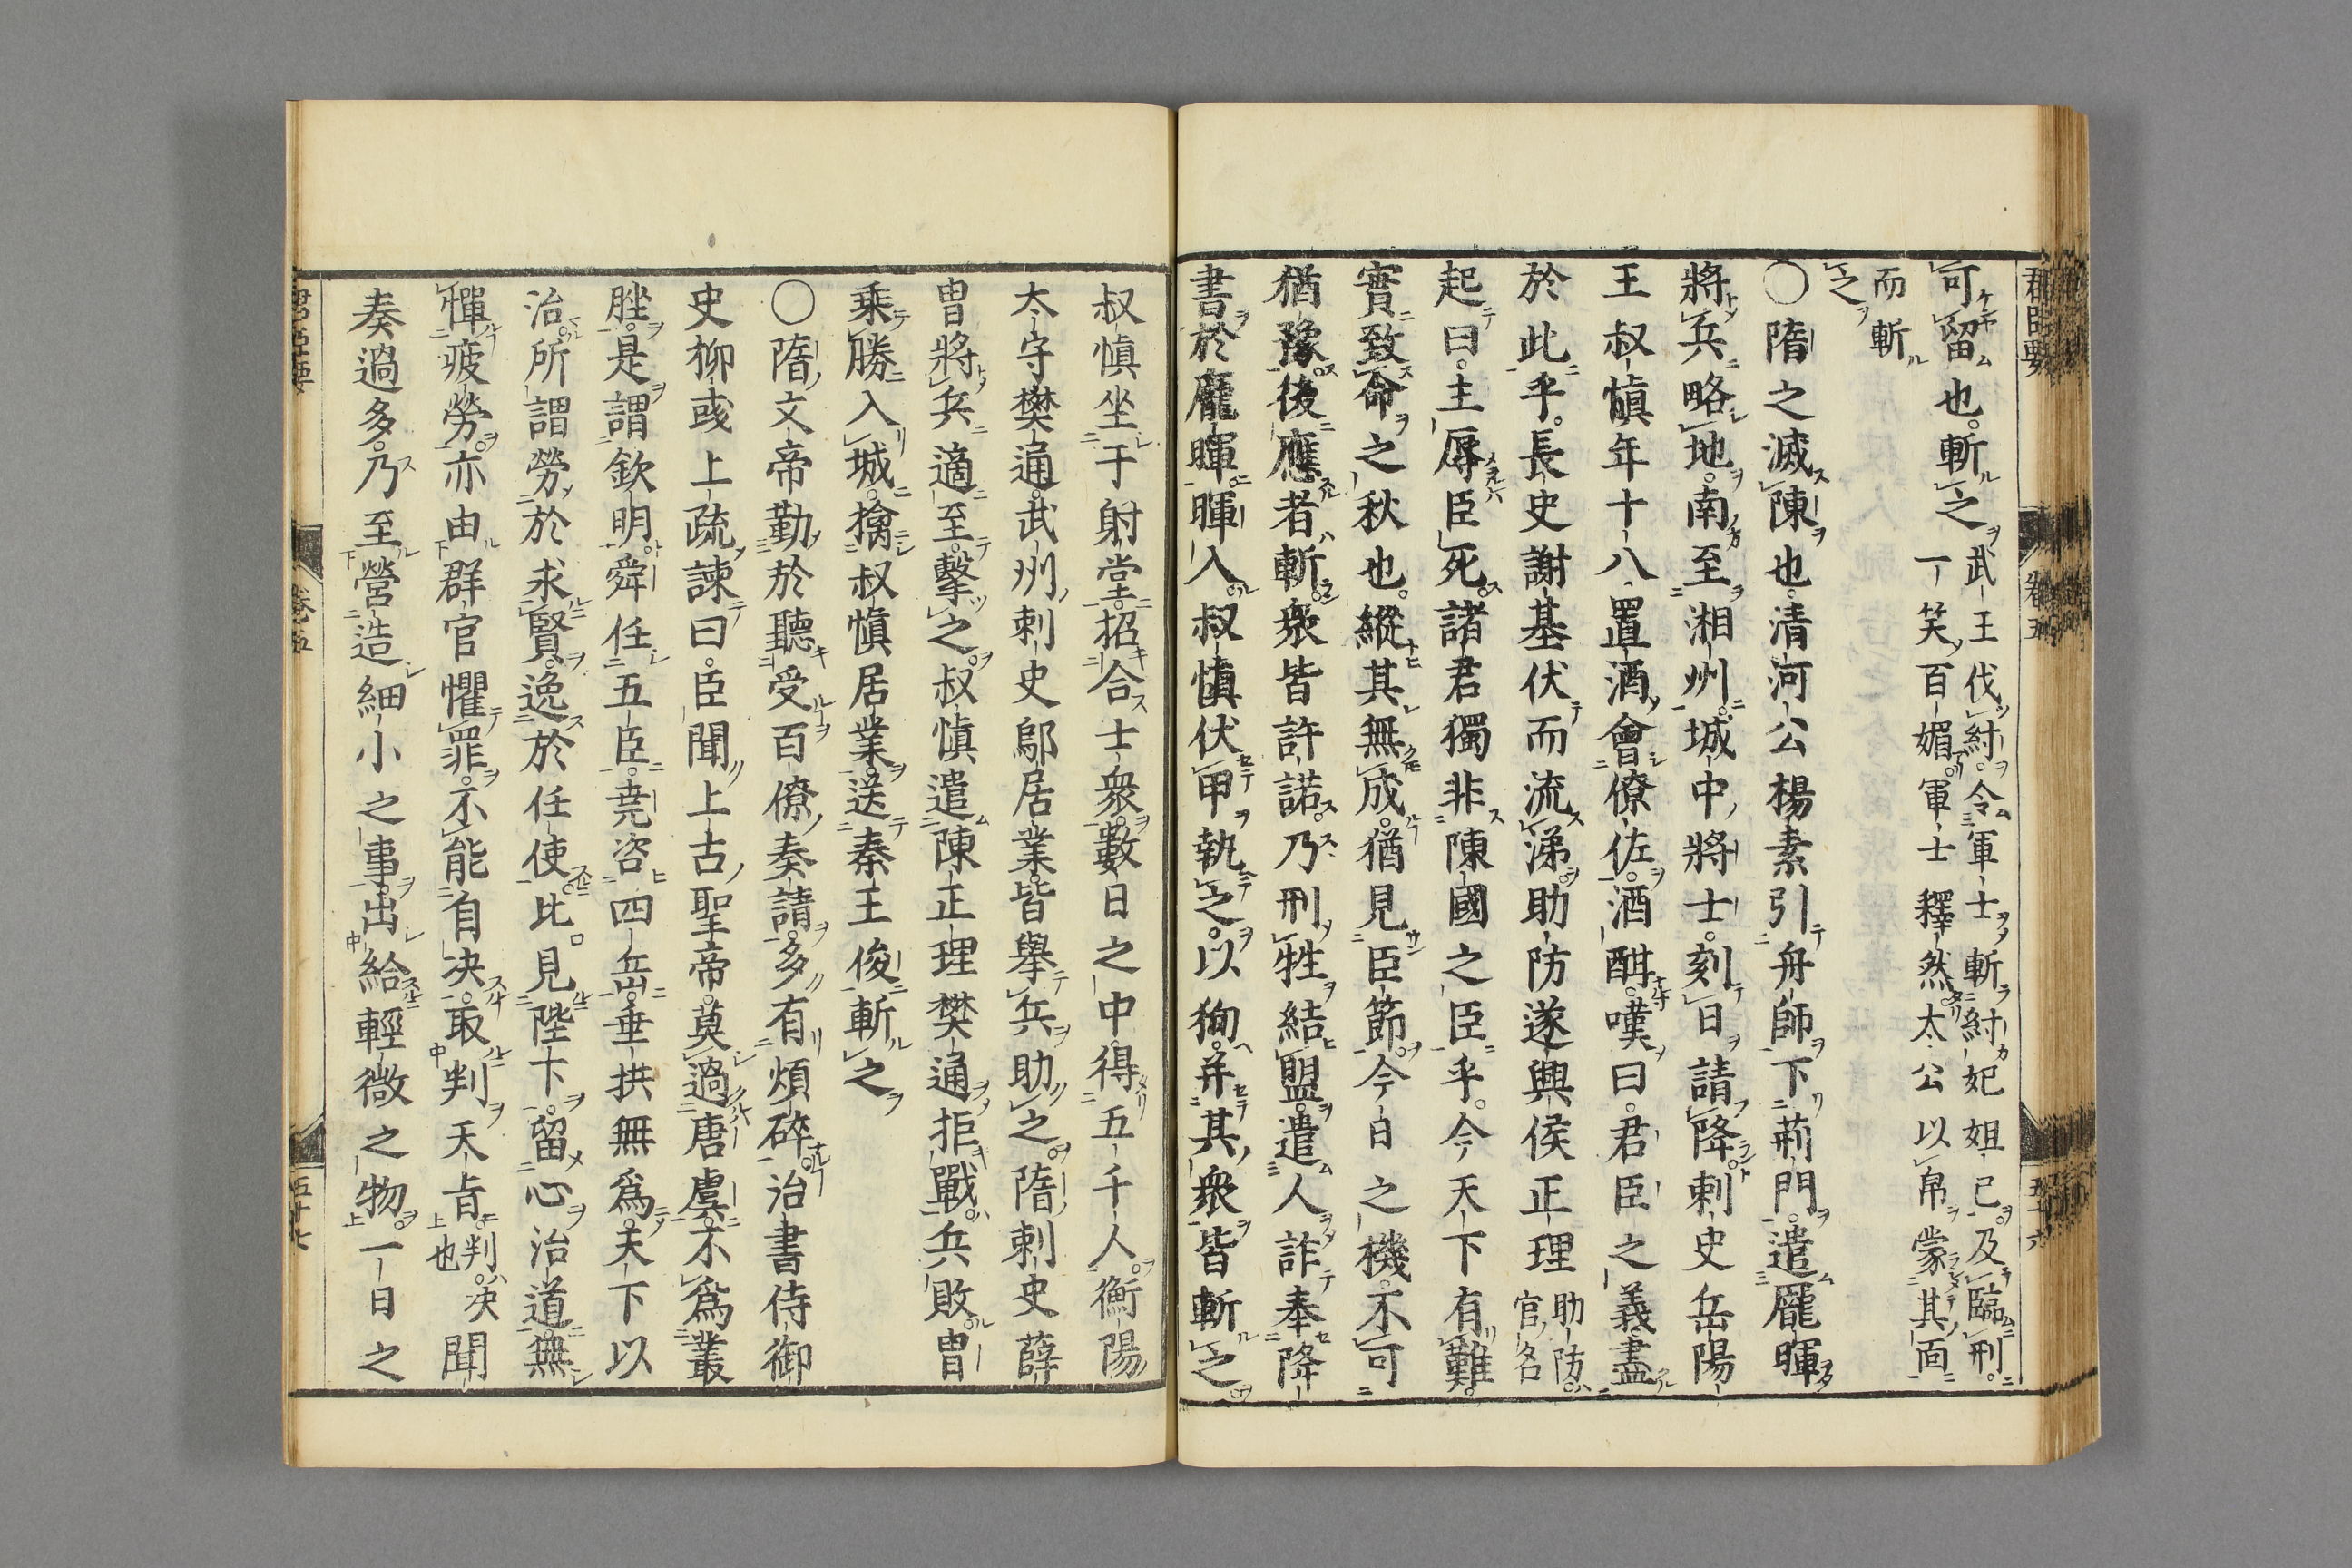 可留也斬之武王伐紂令軍士斬紂妃妲己及臨刑
一笑百媚軍士釋然太公以帛蒙其面
而斬
之
〇隋之滅陳也清河公楊素引舟師下荊門遣龐暉
將兵略地南至湘州城中將士刻日請降刺史岳陽
王叔愼年十八置酒會僚佐酒酣嘆曰君臣之義盡
於此乎長史謝基伏而流涕助防遂興侯正理助防
官名
起曰主辱臣死諸君獨非陳國之臣乎今天下有難
實致命之秋也縱其無成猶見臣節今日之機不可
猶豫後應者斬衆皆許諾乃刑牲結盟遣人詐奉降
書於龐暉暉入叔愼伏甲執之以徇并其衆皆斬之
叔愼坐于射堂招合士衆數日之中得五千人衡陽
太守樊通武州刺史鄔居業皆舉兵助之隋刺史薛
胄將兵適至擊之叔愼遣陳正理樊通拒戰兵敗胄
乘勝入城擒叔愼居業送秦王俊斬之
〇隋文帝勤於聽受百僚奏請多有煩碎治書侍御
史柳彧上疏諫曰臣聞上古聖帝莫過唐虞不爲叢
脞是謂欽明舜任五臣堯咨四岳垂拱無爲天下以
治所謂勞於求賢逸於任使比見陛下留心治道無
憚疲勞亦由群官懼罪不能自决取判天旨判决
也聞
奏過多乃至營造細小之事出給輕微之物一日之
君臣要
卷五
五十七